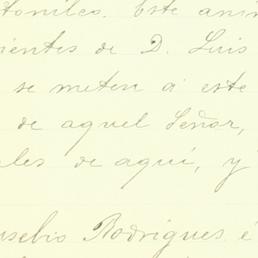 tonilco. Este ani
ientes de D. Luis
se meten á este
de aquel Señor,
ales de aquí, y
usebio Rodrigues é